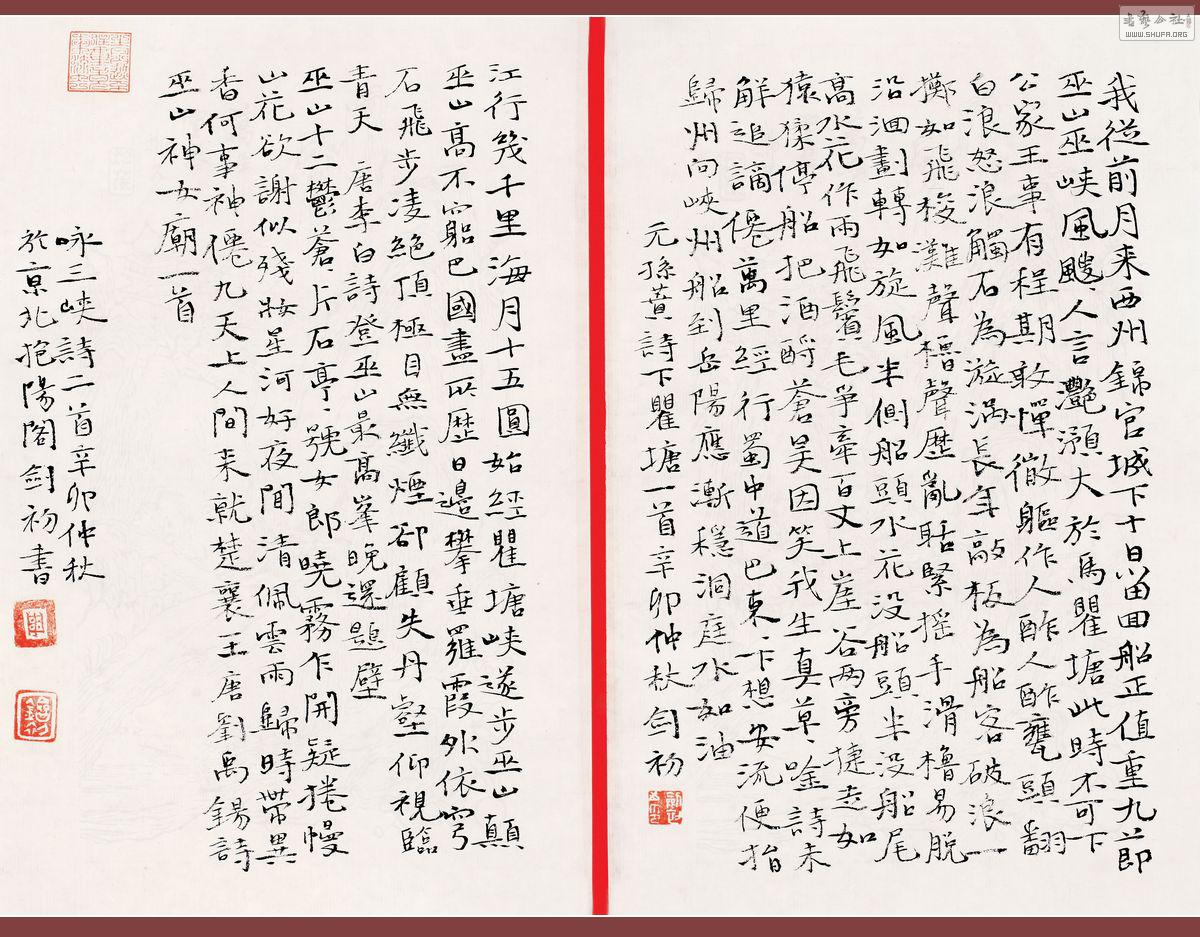 我從前月来西州錦官城下十日留回船正值重九節
巫山巫峽風颼〻人言灧澦大於馬瞿塘此時不可下
公家王事有程期敢憚微軀作人酢人酢甕頭翻
白浪怒浪觸石為漩渦長年敲板為船客破浪一
擲如飛梭灘聲櫓聲歷亂聒緊摇手滑櫓易脫
沿洄劃轉如旋風半側船頭水花没船頭半没船尾
高水花作雨飛鬢毛爭牽百丈上崖谷两旁捷走如
猿猱停船把酒酹蒼昊因笑我生真草〻唫詩未
觧追謫僊萬里經行蜀中道巴東一下想安流便指
歸州向峽州船到岳陽應漸穩洞庭水如油
元孫蕡詩下瞿塘一首辛卯仲秋劍初
江行幾千里海月十五圓始經瞿塘峽遂步巫山巔
巫山高不窮巴國盡所歷日邊攀垂羅霞外依穹
石飛步凌絕頂極目無纖煙卻顧失丹壑仰視臨
青天 唐李白詩登巫山最高峯晚還題壁
巫山十二鬱蒼〻片石亭〻號女郎曉霧乍開疑捲幔
山花欲謝似殘妝星河好夜聞清佩雲雨歸時帶異
香何事神僊九天上人間来就楚襄王唐劉禹錫詩
巫山神女廟一首
咏三峽詩二首辛卯仲秋
於京北抱陽閣劍初書
WWW.SHUFA.ORG